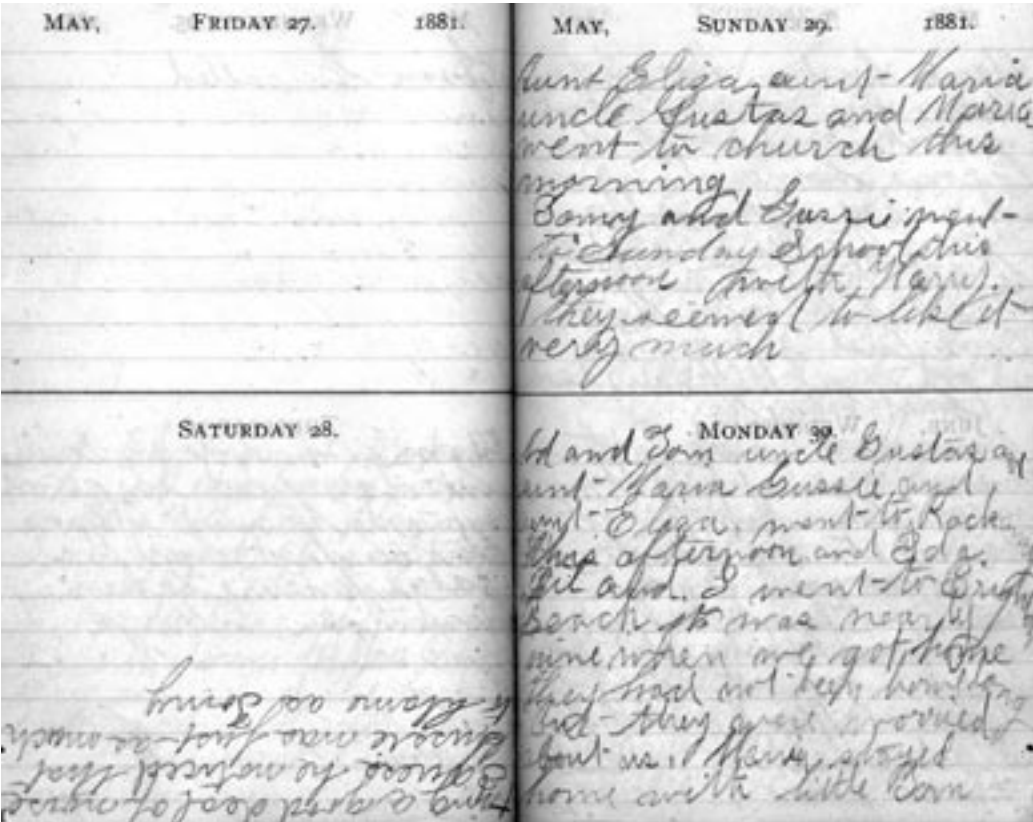 MAY, FRIDAY 27. 1881.
SATURDAY 28.
ting a good deal of noise
I guess he noticed that
Gussie was just as much
to blame as Tomy
MAY, SUNDAY 29. 1881.
Aunt Eliza, aunt Maria
uncle Gustas and Maria
went to church this
morning
Tomy and Gussie went
to Sunday School this
afternoon with Harry.
They seemed to like it
very much
MONDAY 30.
and Tom uncle Gustas and
unt Maria Gussie and
unt Eliza, went to Rock
this afternoon and Eda.
and I went to Brigh
Beach it was nearly
nine when we got home
they had not been home long
but they were worried
about us. Harry stayed
home with little Tom